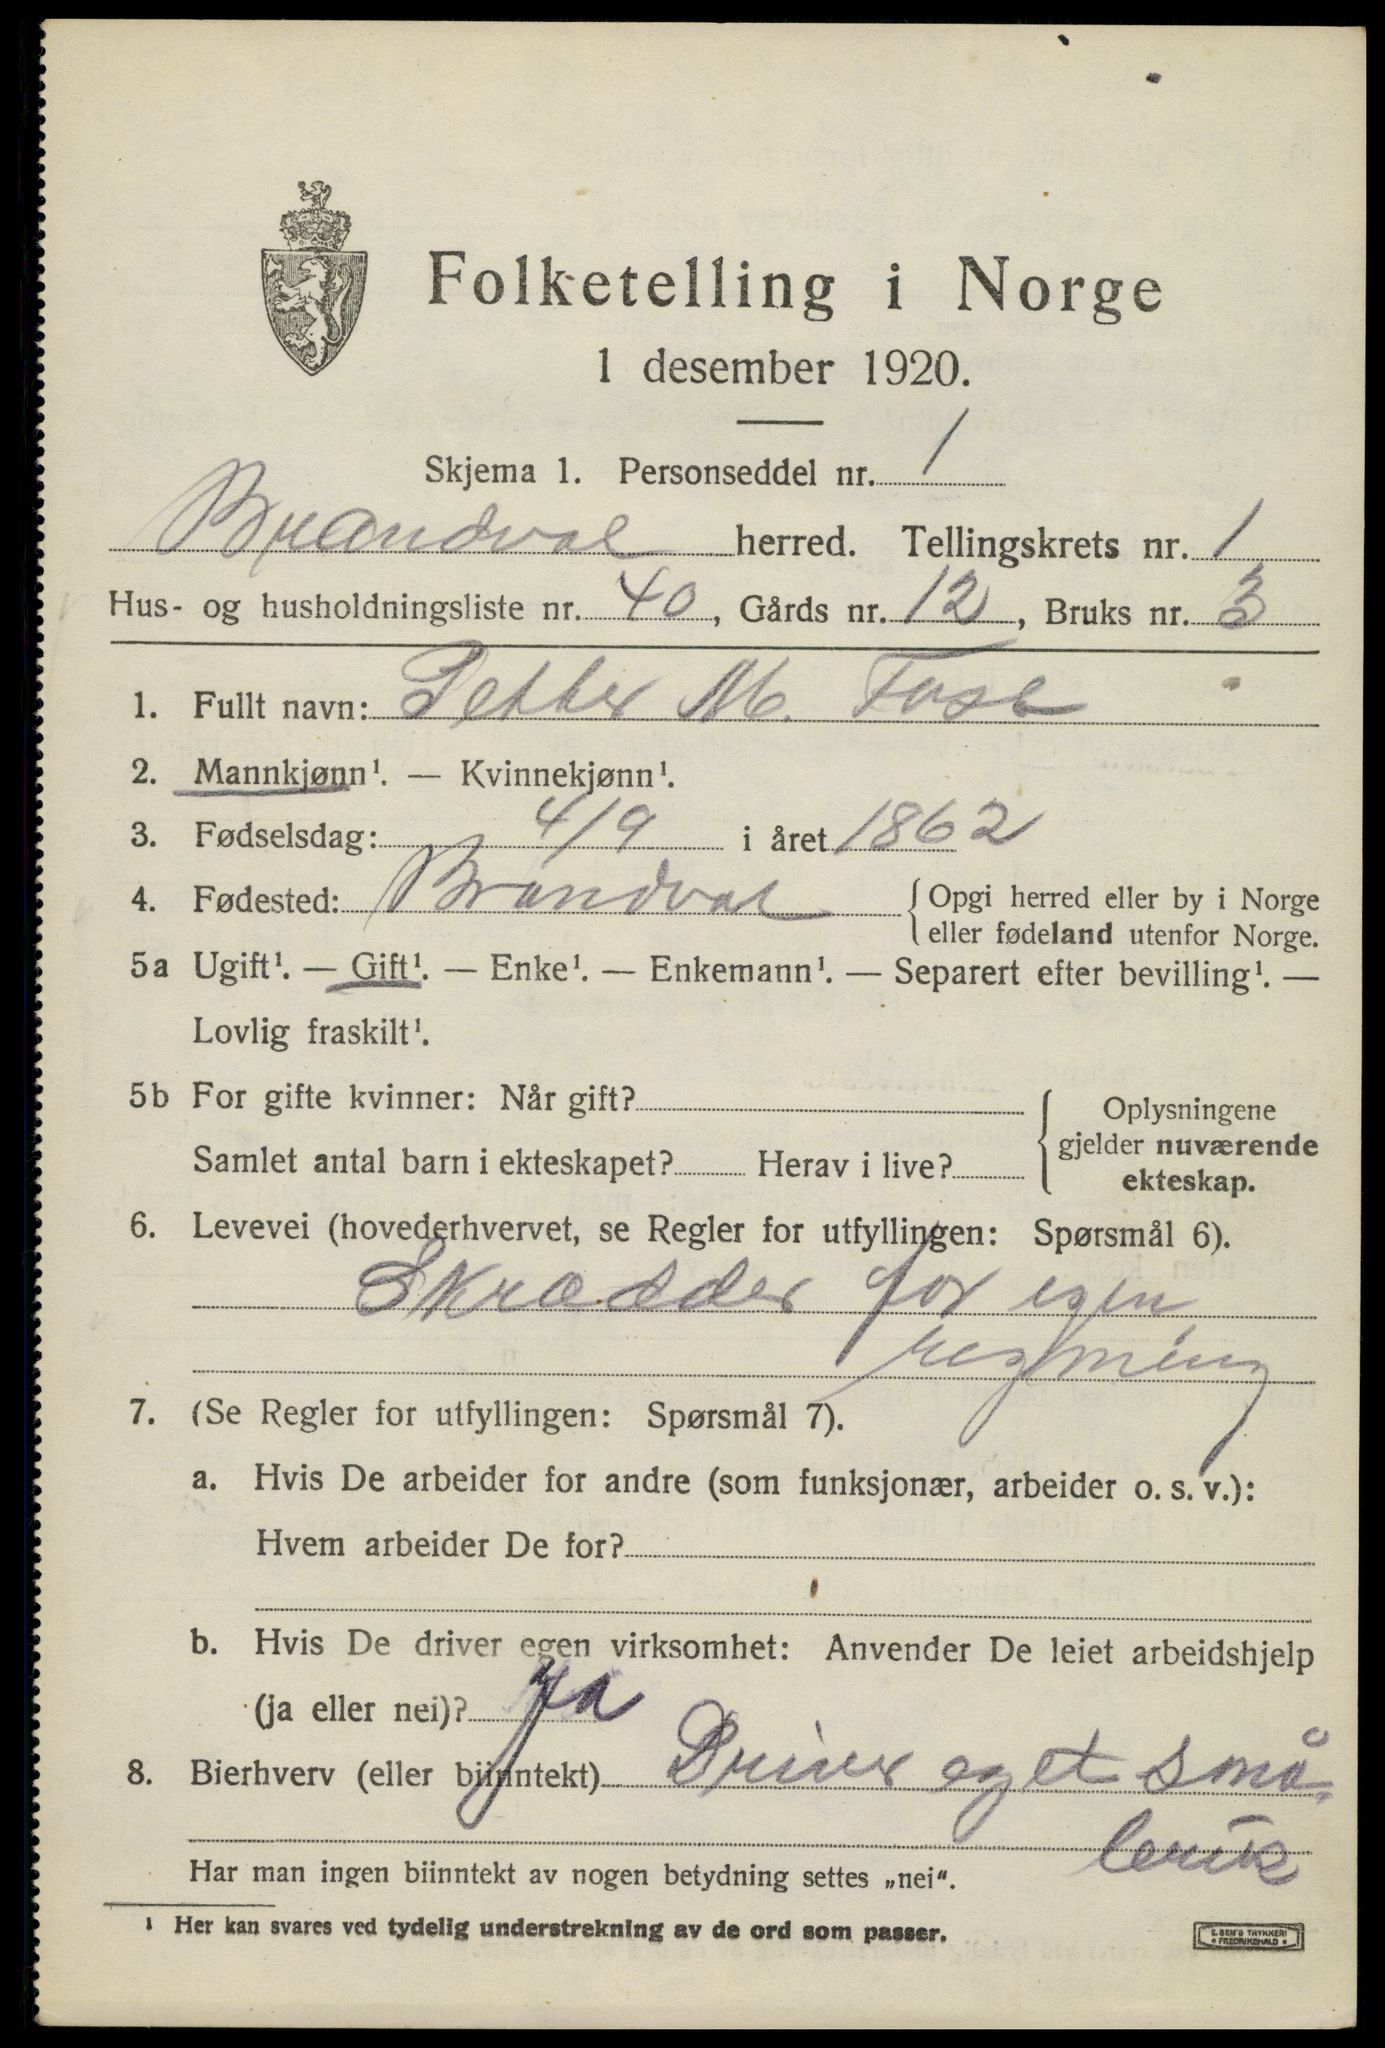 Folketelling i Norge
1 desember 1920.
Skjema 1. Personseddel nr. 1
Brandval herred. Tellingskrets nr. 1
Hus- og husholdningsliste nr. 40, Gårds nr. 12, Bruks nr. 3
1. Fullt navn: Petter M.
2. Mannkjønn¹. — Kvinnekjønn¹.
3. Fødselsdag: 4/9 i året 1862
4. Fødested: Brandval { Opgi herred eller by i Norge
eller fødeland utenfor Norge.
5a Ugift¹. — Gift¹. — Enke¹. — Enkemann¹. — Separert efter bevilling¹. —
Lovlig fraskilt¹.
5b For gifte kvinner: Når gift?
Samlet antal barn i ekteskapet? Herav i live?
{ Oplysningene
gjelder nuværende
ekteskap.
6. Levevei (hovederhvervet, se Regler for utfyllingen: Spørsmål 6).
Skrædder for egen
regning
7. (Se Regler for utfyllingen: Spørsmål 7).
a. Hvis De arbeider for andre (som funksjonær, arbeider o. s. v.):
Hvem arbeider De for?
b. Hvis De driver egen virksomhet: Anvender De leiet arbeidshjelp
(ja eller nei)? Ja
8. Bierhverv (eller biinntekt) Driver eget små
bruk
Har man ingen biinntekt av nogen betydning settes „nei".
¹ Her kan svares ved tydelig understrekning av de ord som passer.
E. SEM'S TRYKKERI
FREDRIKSHALD